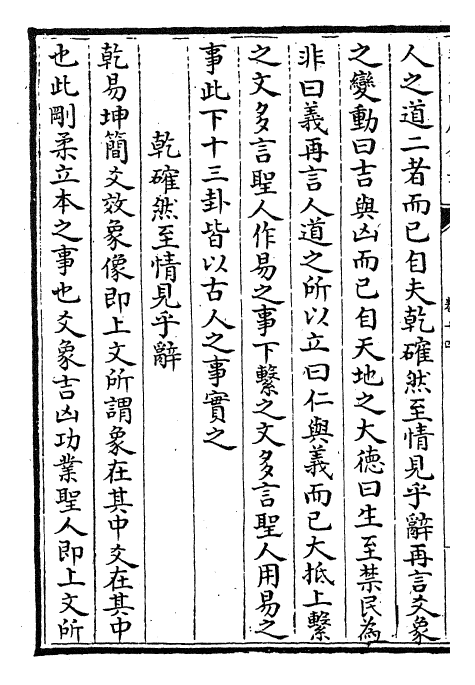 人之道二者而已自夫乾確然至情見乎辭再言爻象
之變動曰吉與凶而已自天地之大德曰生至禁民為
非曰義再言人道之所以立曰仁與義而已大抵上繫
之文多言聖人作易之事下繫之文多言聖人用易之
事此下十三卦皆以古人之事實之
乾確然至情見乎辭
乾易坤簡爻效象像即上文所謂象在其中爻在其中
也此剛柔立本之事也爻象吉凶功業聖人即上文所